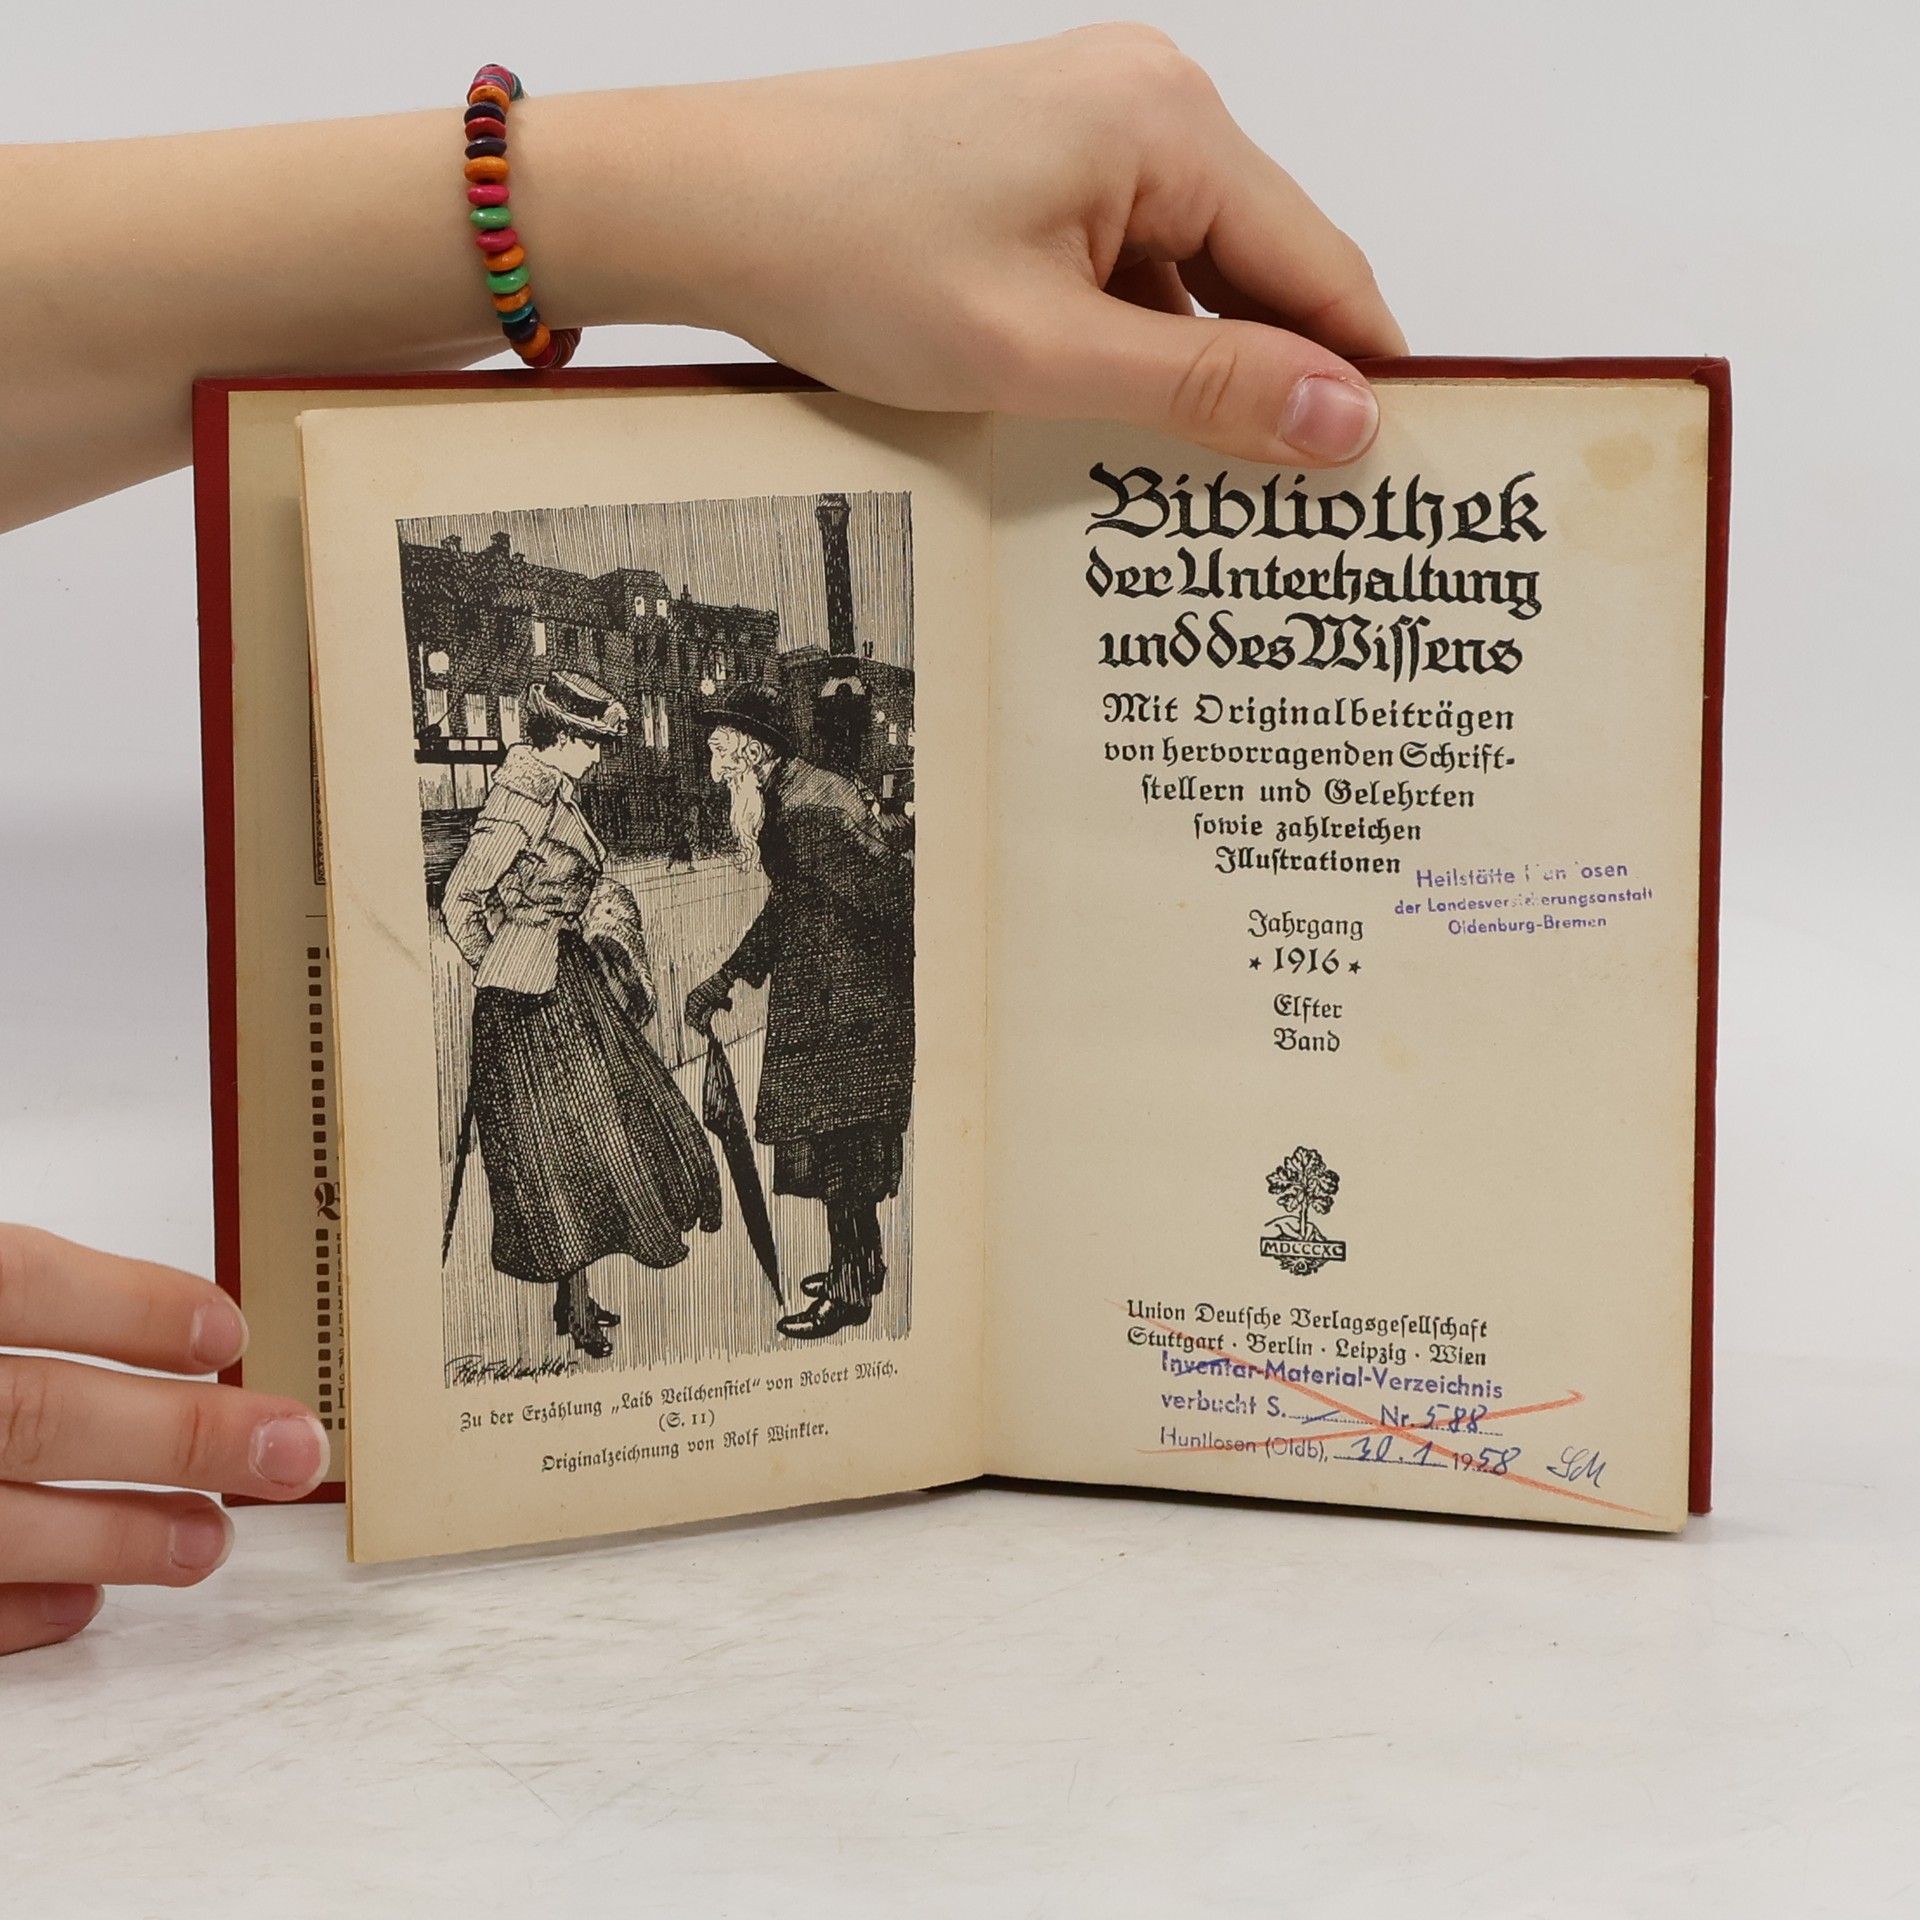 Zu der Erzählung „Laib Veilchenstiel“ von Robert Misch.
(S. 11)
Originalzeichnung von Rolf Winkler.
Bibliothek
der Unterhaltung
und des Wissens
Mit Originalbeiträgen
von hervorragenden Schrift-
stellern und Gelehrten
sowie zahlreichen
Illustrationen
Heilstätte
der Landesversicherungsanstalt
Oldenburg-Bremen
Jahrgang
* 1916 *
Elfter
Band
MDCCCXC
Union Deutsche Verlagsgesellschaft
Stuttgart · Berlin · Leipzig · Wien
Inventar-Material-Verzeichnis
verbucht S. Nr. 588
Huntlosen (Oldb), 30. 1. 1958